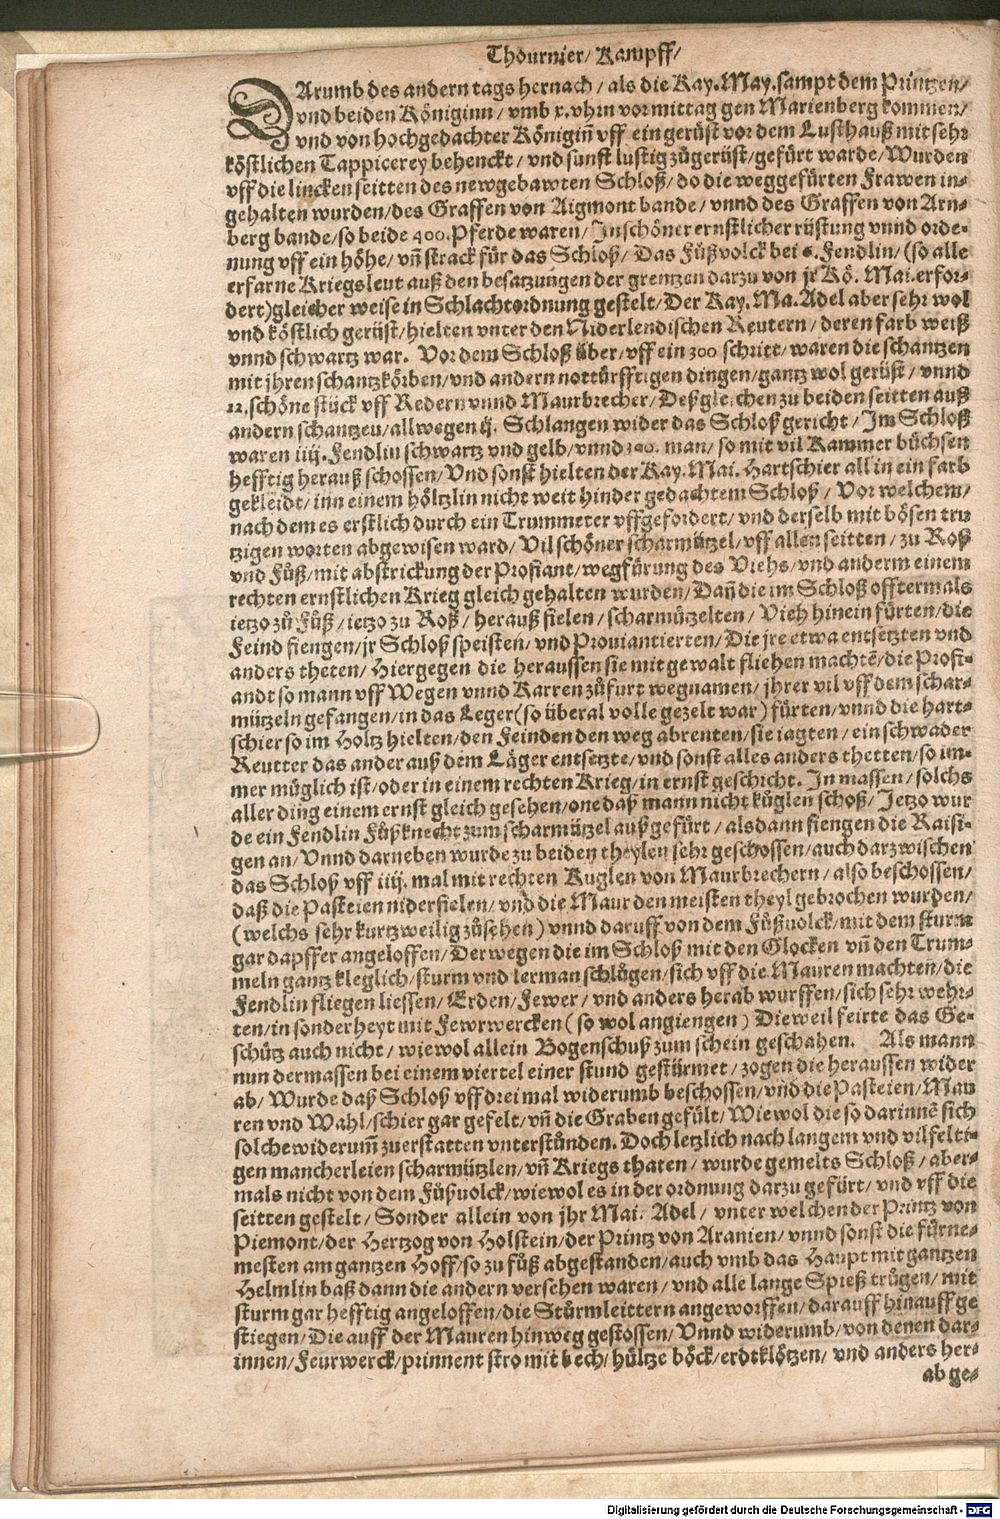 Thournier/ Kampff/
DArumb des andern tags hernach / als die Kay. May. sampt dem Printzen/
vnd beiden Königinn / vmb x. vhrn vor mittag gen Marienberg kommen/
vnd von hochgedachter Königiñ vff ein gerüst vor dem Lusthauß mit sehr
köstlichen Tappicerey behenckt / vnd sunst lustig zůgerüst/gefürt warde/Wurden
vff die lincken seitten des newgebawten Schloß/ do die weggefürten Frawen in-
gehalten wurden/des Graffen von Aigmont bande / vnnd des Graffen von Arn-
berg bande/so beide 400. Pferde waren/ In schöner ernstlicher rüstung vnnd orde-
nung vff ein höhe/ vñ strack für das Schloß/ Das Fůßvolck bei 6. Fendlin/ (so alle
erfarne Kriegsleut auß den besatzungen der grentzen darzu von jr Kö. Mai. erfor-
dert)gleicher weise in Schlachtordnung gestelt/Der Kay. Ma. Adel aber sehr wol
vnd köstlich gerüst/hielten vnter den Niderlendischen Reutern / deren farb weiß
vnnd schwartz war. Vor dem Schloß über/vff ein 300 schritt/ waren die schantzen
mit jhren schantzkörben/vnd andern nottürfftigen dingen/gantz wol gerüst / vnnd
12. schöne stück vff Redern vnnd Maurbrecher/ Deßgleichen zu beiden seitten auß
andern schantzen/allwegen ij. Schlangen wider das Schloß gericht / Im Schloß
waren iiij. Fendlin schwartz vnd gelb/vnnd 300. man/ so mit vil Kammer büchsen
hefftig herauß schossen/ Vnd sonst hielten der Kay. Mai. Hartschier all in ein farb
gekleidt/ inn einem höltzlin nicht weit hinder gedachtem Schloß / Vor welchem/
nach dem es erstlich durch ein Trummeter vffgefordert/ vnd derselb mit bösen tru
tzigen worten abgewisen ward/ Vil schöner scharmützel/vff allen seitten / zu Roß
vnd Fůß/mit abstrickung der Profiant/ wegfürung des Viehs/vnd anderm einem
rechten ernstlichen Krieg gleich gehalten wurden/Dañ die im Schloß offtermals
ietzo zů Fůß / ietzo zu Roß / herauß fielen / scharmützelten / Vieh hinein fürten/die
Feind fiengen/jr Schloß speisten/ vnd Prouiantierten/ Die jre etwa entsetzten vnd
anders theten/ Hiergegen die heraussen sie mit gewalt fliehen machtē/die Profi-
andt so mann vff Wegen vnnd Karren zůfurt wegnamen/ jhrer vil vff dem schar-
mützeln gefangen/in das Leger(so überal volle gezelt war) fürten/vnnd die hart-
schier so im Holtz hielten/den Feinden den weg abrenten/sie iagten / ein schwader
Reutter das ander auß dem Läger entsetzte/ vnd sonst alles anders thetten/so im-
mer müglich ist/oder in einem rechten Krieg/in ernst geschicht. In massen / solchs
aller ding einem ernst gleich gesehen/one daß mann nicht kůglen schoß/ Jetzo wur
de ein Fendlin Fůßknecht zum scharmützel außgefürt / alsdann fiengen die Raisi-
gen an/ Vnnd darneben wurde zu beiden theylen sehr geschossen/auch darzwischen
das Schloß vff iiij. mal mit rechten Kuglen von Maurbrechern / also beschossen/
daß die Pasteien niderfielen/ vnd die Maur den meisten theyl gebrochen wurden/
(welchs sehr kurtzweilig zůsehen) vnnd daruff von dem Fůßuolck/mit dem sturm
gar dapffer angeloffen/Derwegen die im Schloß mit den Glocken vñ den Trum-
meln gantz kleglich/sturm vnd lerman schlůgen/sich vff die Mauren machten/die
Fendlin fliegen liessen/ Erden/Fewer / vnd anders herab wurffen/sich sehr wehr-
ten/in sonderheyt mit Fewrwercken ( so wol angiengen ) Dieweil feirte das Ge-
schütz auch nicht / wiewol allein Bogenschuß zum schein geschahen. Als mann
nun dermassen bei einem viertel einer stund gestürmet / zogen die heraussen wider
ab/ Wurde daß Schloß vff drei mal widerumb beschossen/vnd die Pasteien/Mau
ren vnd Wahl/schier gar gefelt/ vñ die Graben gefült/ Wiewol die so darinnē sich
solche widerum̃ zuerstatten vnterstůnden. Doch letzlich nach langem vnd vilfelti-
gen mancherleien scharmützlen/vñ Kriegs thaten / wurde gemelts Schloß / aber-
mals nicht von dem Fůßuolck/wiewol es in der ordnung darzu gefürt/ vnd vff die
seitten gestelt/ Sonder allein von jhr Mai. Adel / vnter welchen der Printz von
Piemont/der Hertzog von Holstein/der Printz von Aranien/ vnnd sonst die fürne-
mesten am gantzen Hoff/so zu fůß abgestanden/auch vmb das Haupt mit gantzen
Helmlin baß dann die andern versehen waren/ vnd alle lange Spieß trůgen/ mit
sturm gar hefftig angeloffen/die Stürmleittern angeworffen/ darauff hinauff ge
stiegen/ Die auff der Mauren hinweg gestossen/ Vnnd widerumb/von denen dar-
innen/Feurwerck/prinnent stro mit bech/ hültze böck/erdtklötzen/ vnd anders her-
ab ge-
Digitalisierung gefördert durch die Deutsche Forschungsgemeinschaft - DFG